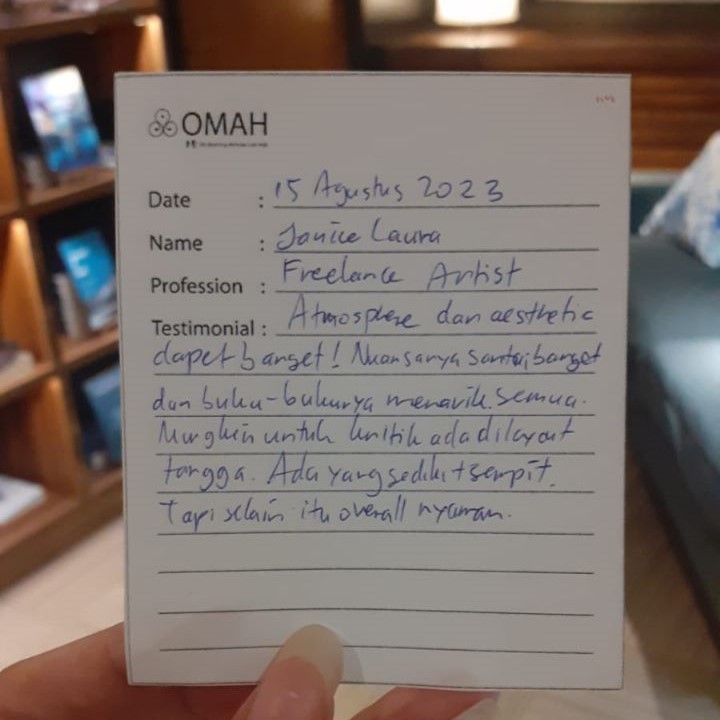 OMAH
Date : 15 Agustus 2023
Name : Janice Laura
Profession : Freelance Artist
Testimonial : Atmosphere dan aesthetic
dapet banget! Nuansanya santai banget
dan buku-bukunya menarik semua.
Mungkin untuk kritik ada di layout
tangga. Ada yang sedikit sempit.
Tapi selain itu overall nyaman.